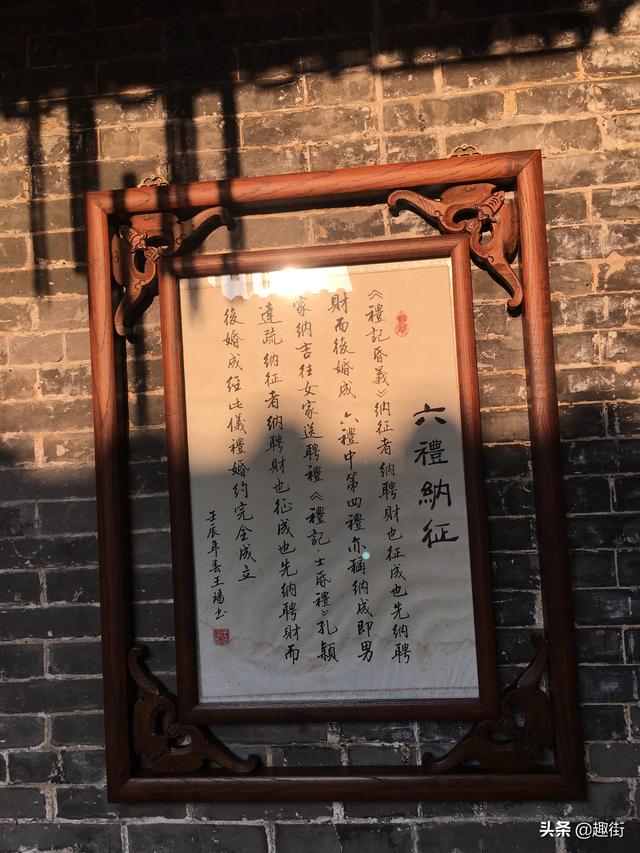 六禮納征
《禮記昏義》納征者納聘財也征成也先納聘
財而後婚成 六禮中第四禮亦稱納成即男
家納吉往女家送聘禮《禮記·士昏禮》孔穎
達疏納征者納聘財也征成也先納聘財而
後婚成經此儀禮婚約完全成立
壬辰年春王璠书
头条 @趣街